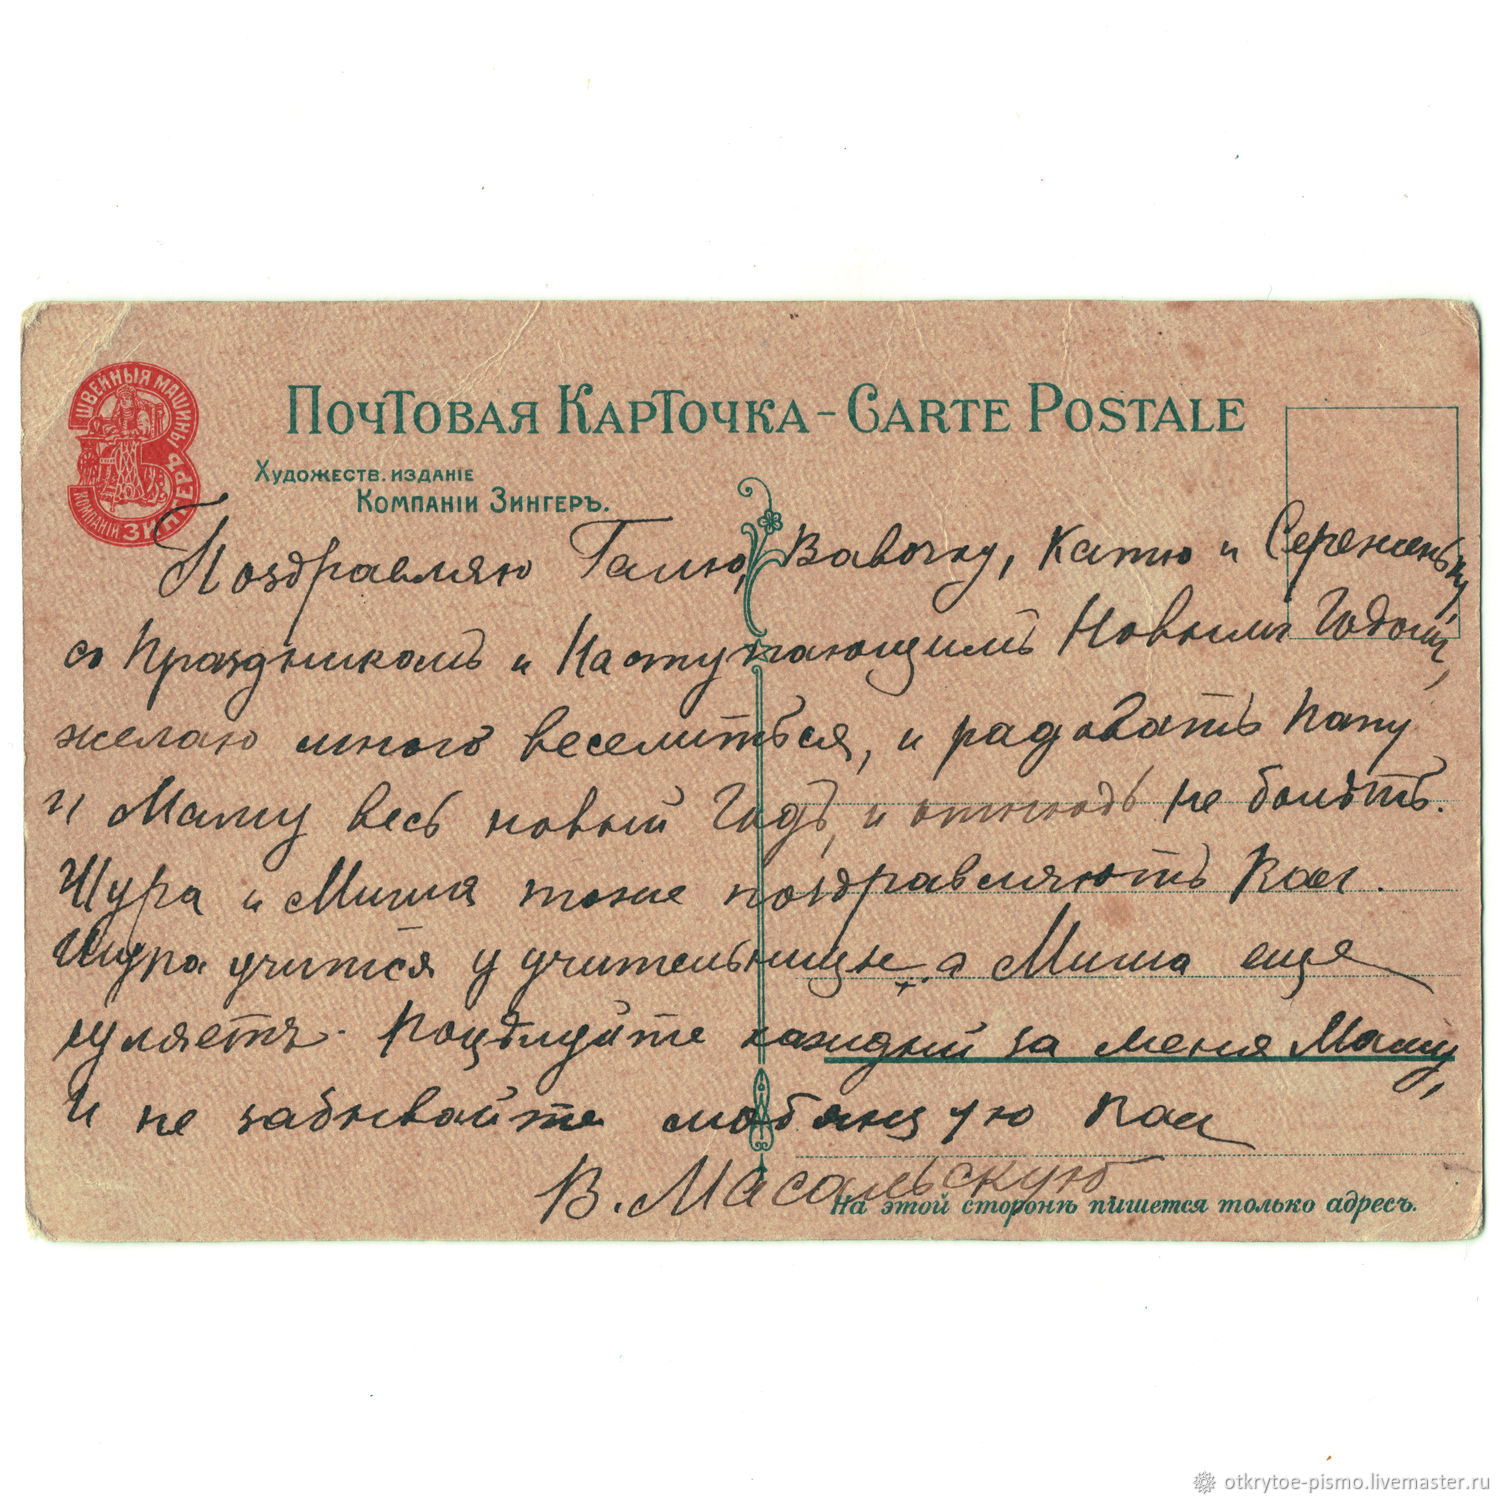 ШВЕЙНЫЯ МАШИНЫ
КОМПАНІИ ЗИНГЕРЪ
Почтовая Карточка - Carte Postale
Художеств. изданіе
Компаніи Зингеръ.
Поздравляю Галю, Вавочку, Катю и Сереженьку
со Праздникомъ и Наступающимъ Новымъ Годомъ,
желаю много веселиться, и радовать Папу
и Маму весь новый Годъ, и отнюдь не болѣть.
Шура и Миша тоже поздравляютъ Вас.
Шура учится у учительницы, а Миша еще
гуляетъ. Поцѣлуйте каждый за меня Маму,
И не забывайте любящую Вас
В. Масальскую
На этой сторонѣ пишется только адресъ.
otkrytoe-pismo.livemaster.ru